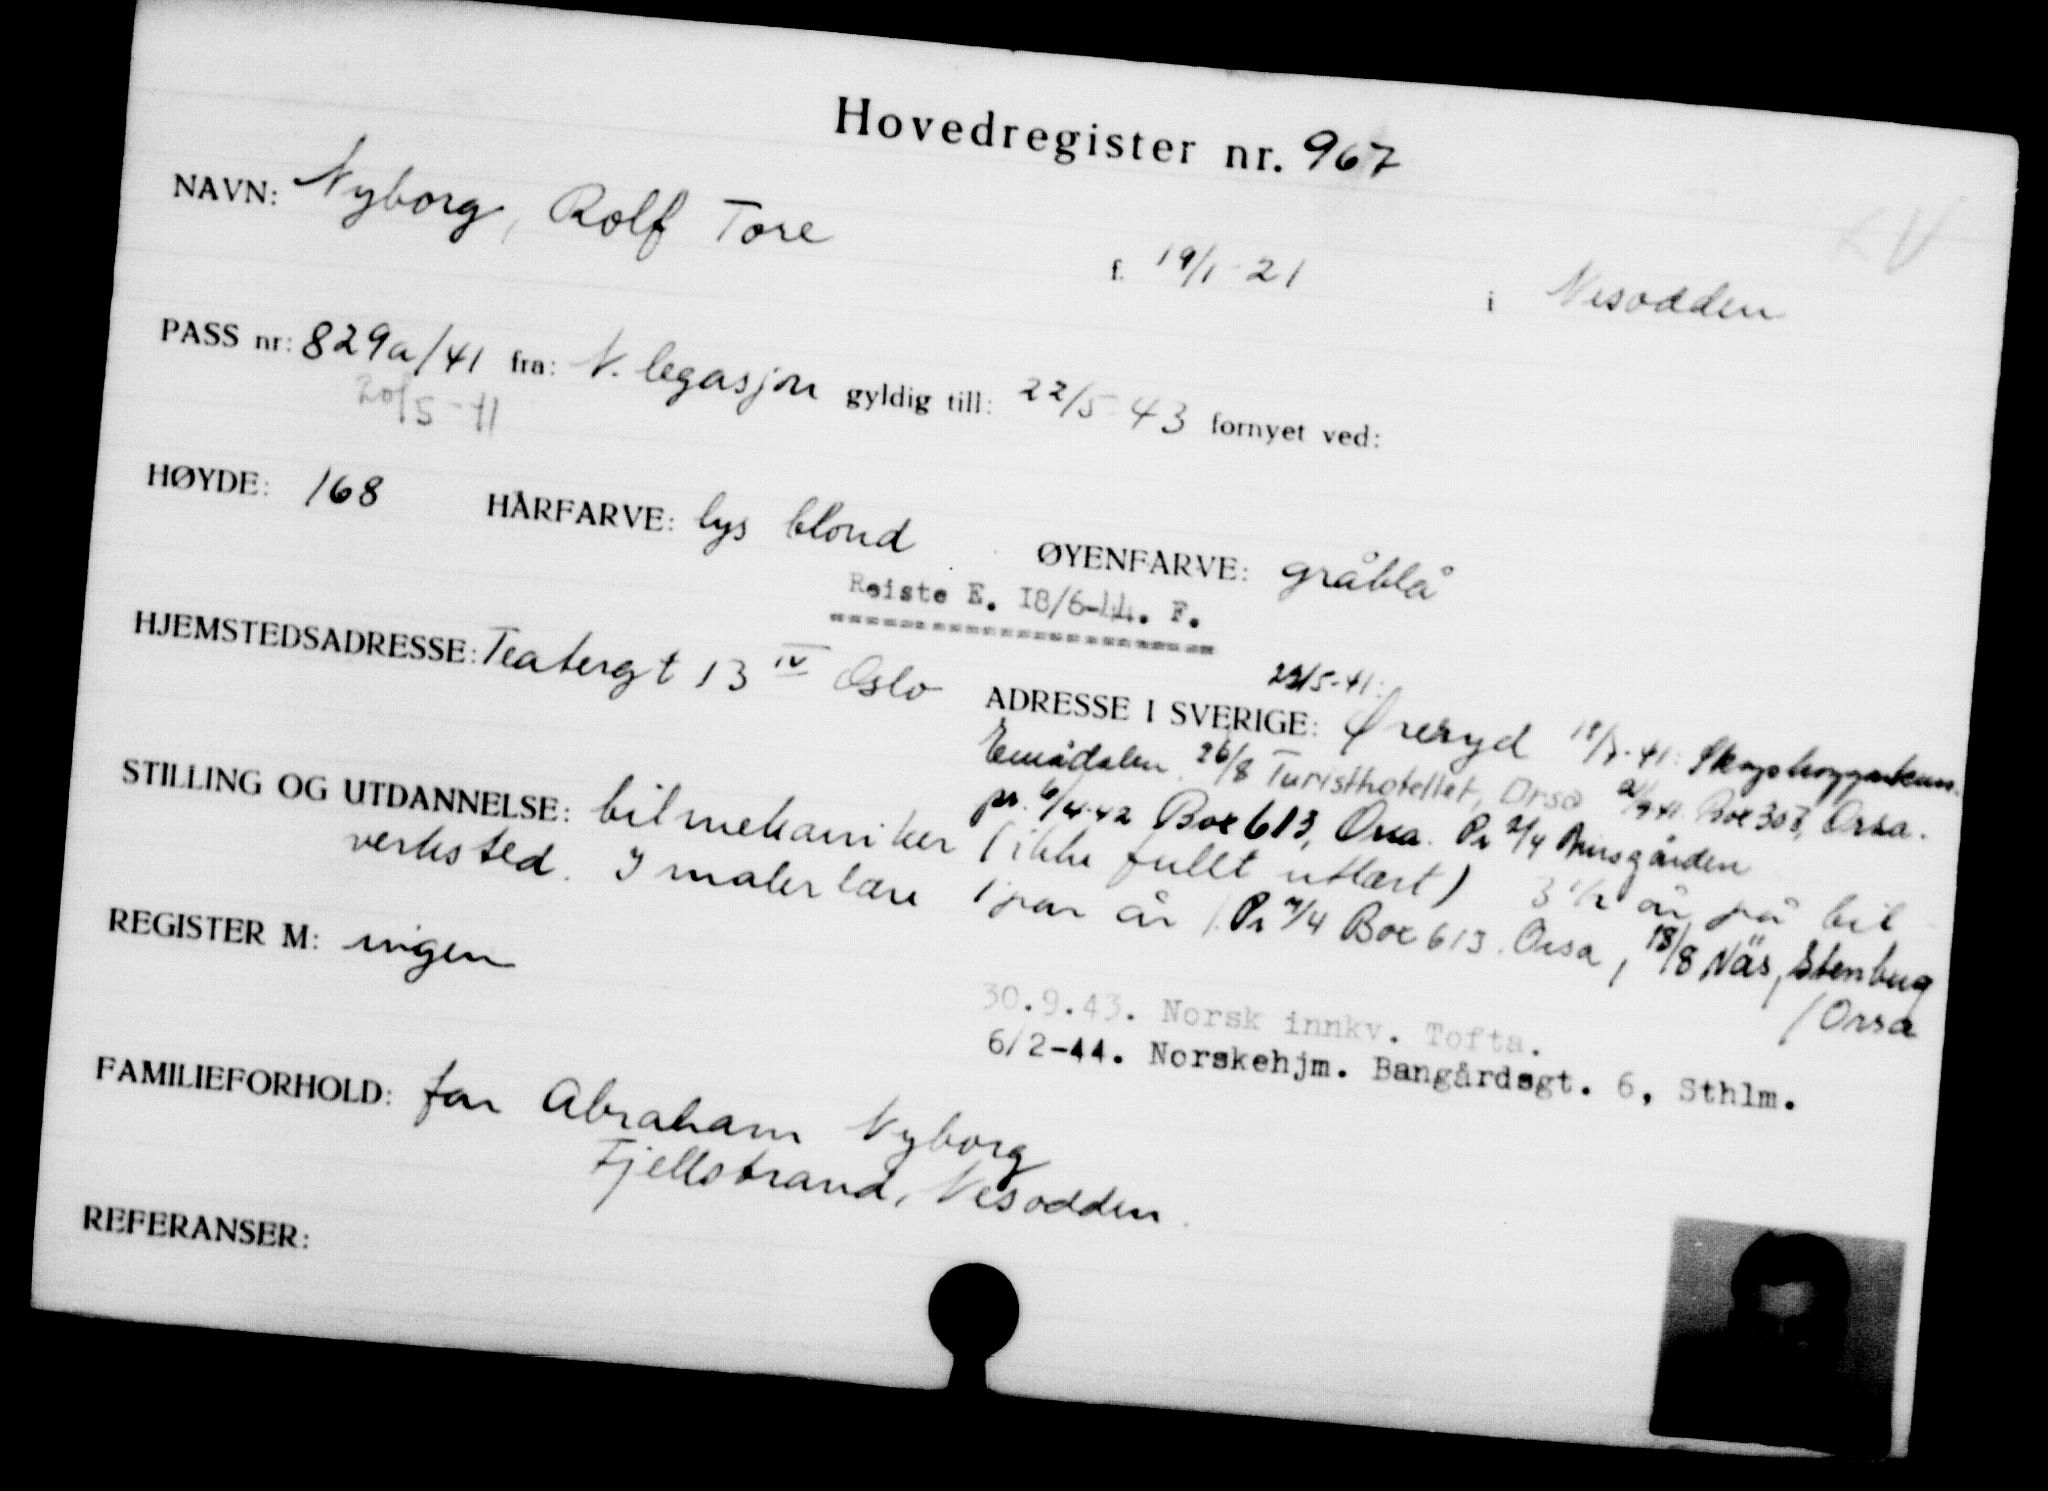 Hovedregister nr. 967
NAVN: Nyborg, Rolf Tore f. 19/1-21 i Nesodden
PASS nr: 829a/41 fra: N. legasjon gyldig till: 22/5-43 fornyet ved:
20/5-41
HØYDE: 168 HÅRFARVE: lys blond ØYENFARVE: gråblå
Reiste E. 18/6-44. F.
HJEMSTEDSADRESSE: Teatergt 13 IV Oslo
ADRESSE I SVERIGE: Øreryd
Emådalen. 26/8 Turisthotellet, Orsa Box 307, Orsa.
pr. 6/4-42 Box 613, Orsa. Pr 2/4
STILLING OG UTDANNELSE: bilmekaniker (ikke fullt utlært) 3 1/2 år på bil
verksted. I maler lære 1 par år
Pr 7/4 Box 613. Orsa, 18/8 Näs, Stenberg
/Orsa
REGISTER M: ingen
30.9.43. Norsk innkv. Tofta.
6/2-44. Norskehjm. Bangårdsgt. 6, Sthlm.
FAMILIEFORHOLD: far Abraham Nyborg
Fjellstrand, Nesodden.
REFERANSER: